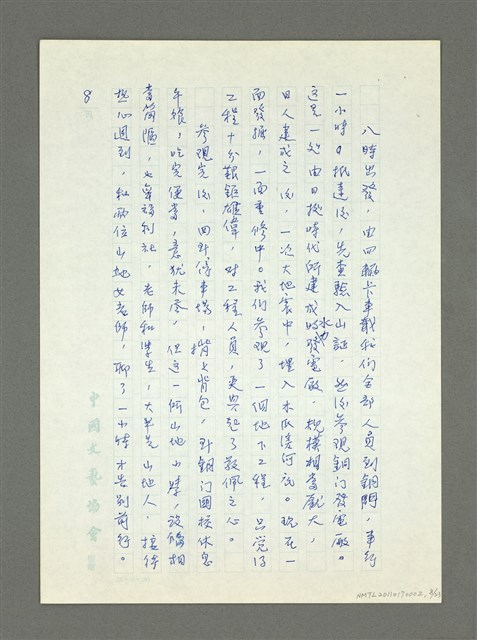 八時出發，由四輛卡車載我們全部人員到銅門，車行
一小時。抵達後，先查驗入山証，然後參觀銅門發電廠。
這是一處由日據時代所建成的水力發電廠，規模相當龐大，
日人建成之後，一次大地震中，埋入木瓜溪河底。現在一
面發掘，一面重修中。我們參觀了一個地下工程，只覺得
工程十分艱鉅雄偉，對工程人員，更興起了敬佩之心。
參觀完後，回到停車場，揹上背包，到銅門國校休息
午餐，吃完便當，意猶未盡，但這一所山地小學，設備相
當簡陋，也舉福利社，老師和學生，大半是山地人，接待
熱心週到，和兩位山地女老師，聊了一小時才告別前行。
8
中國文藝協會
NMTL20110170002,